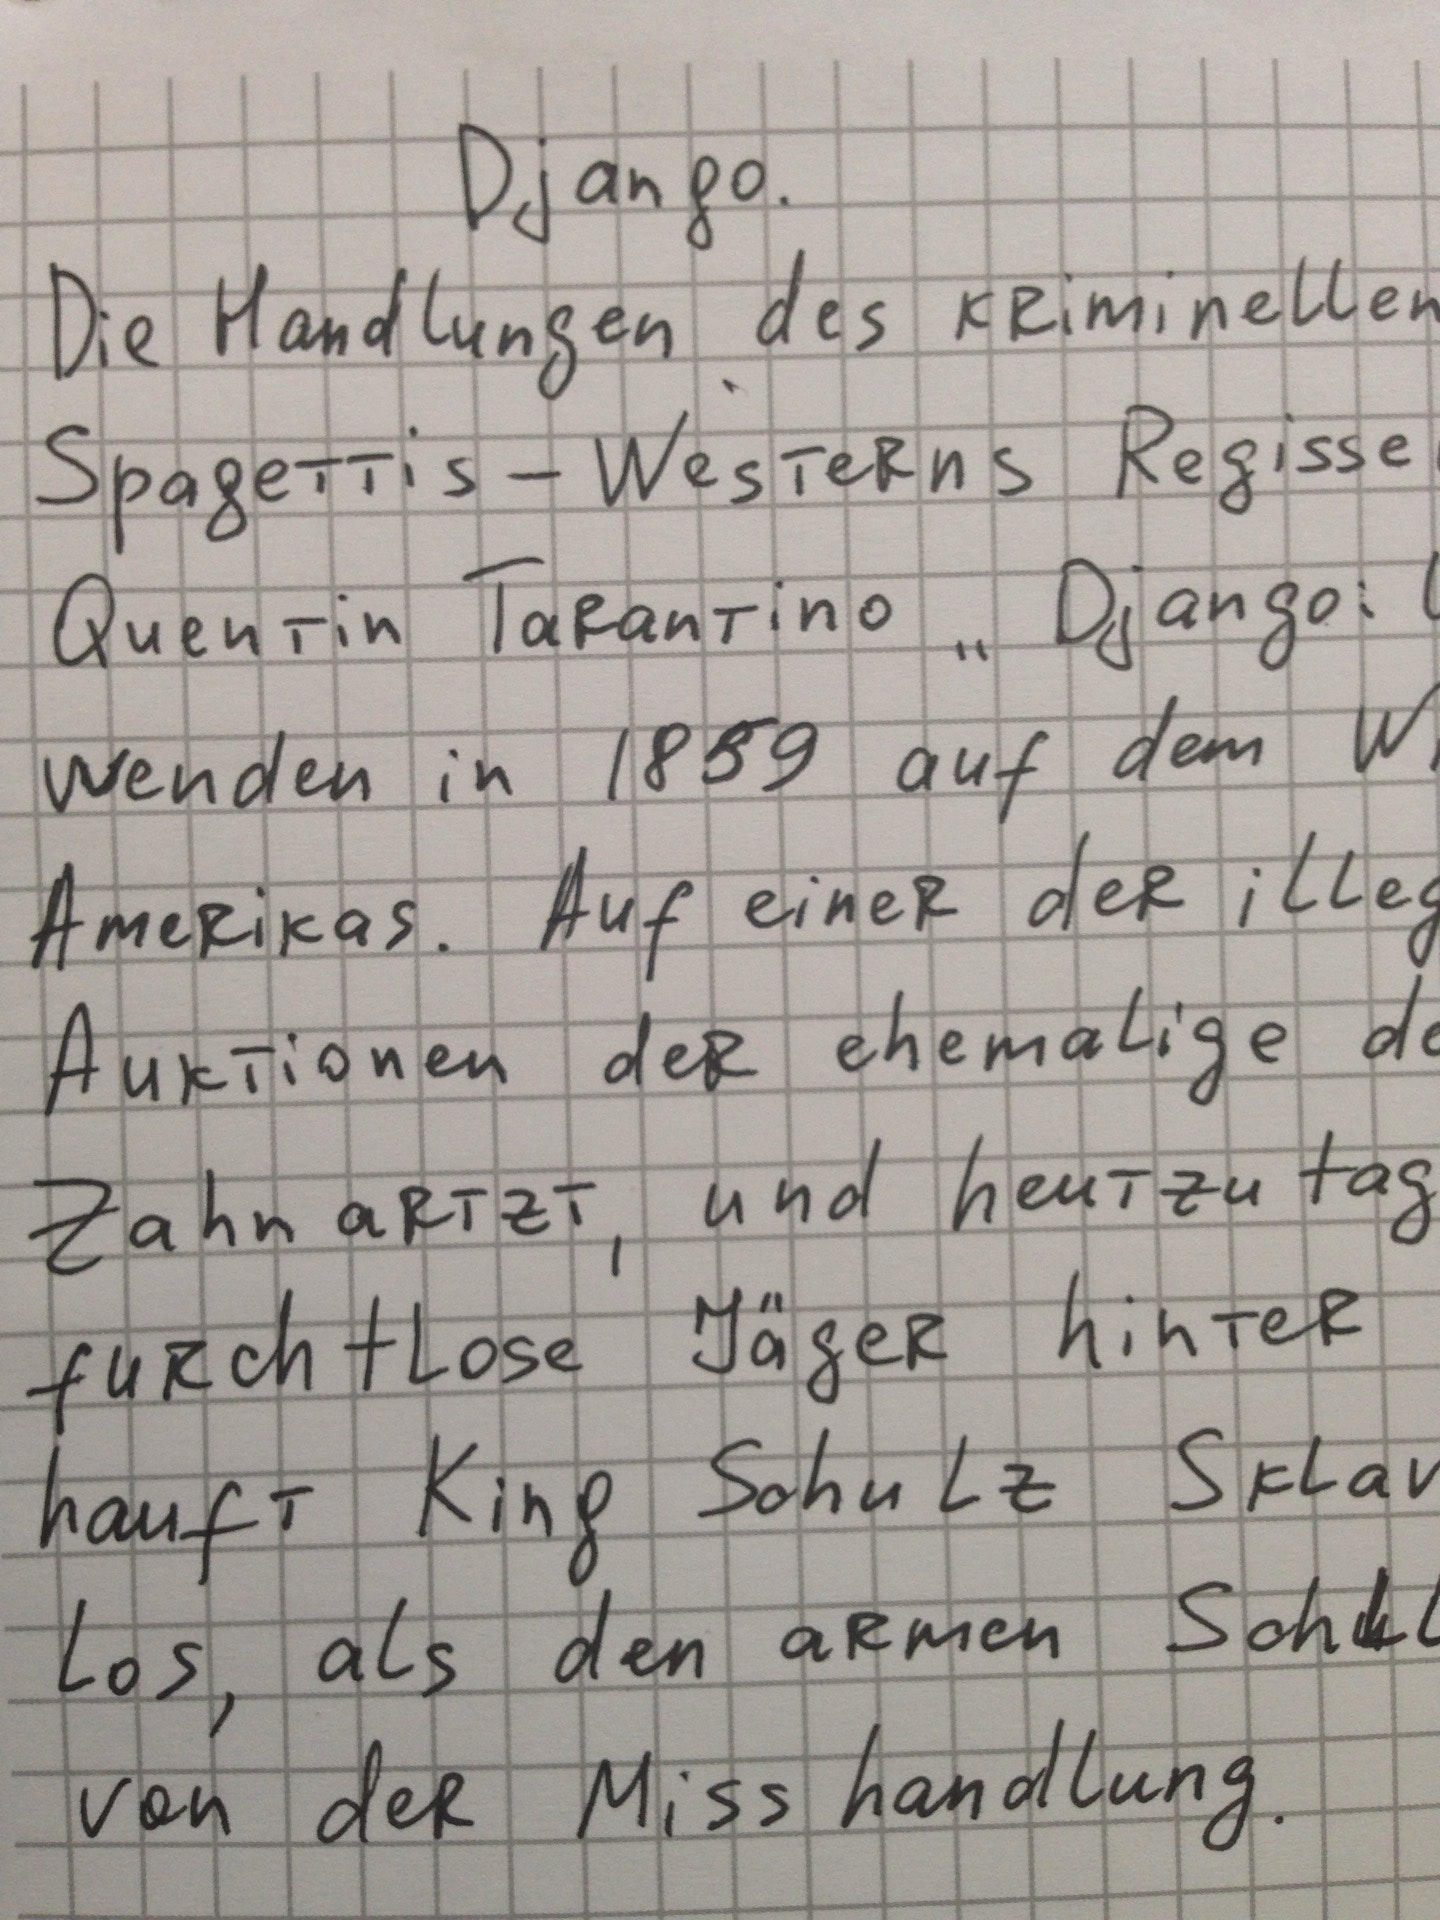 Django.
Die Handlungen des kriminellen
Spagettis - Westerns Regisse
Quentin Tarantino „ Django:
wenden in 1859 auf dem
Amerikas. Auf einer der illeg
Auktionen der ehemalige de
Zahnartzt, und heutzutag
furchtlose Jäger hinter
hauft King Schulz Sklav
Los, als den armen
von der Misshandlung.